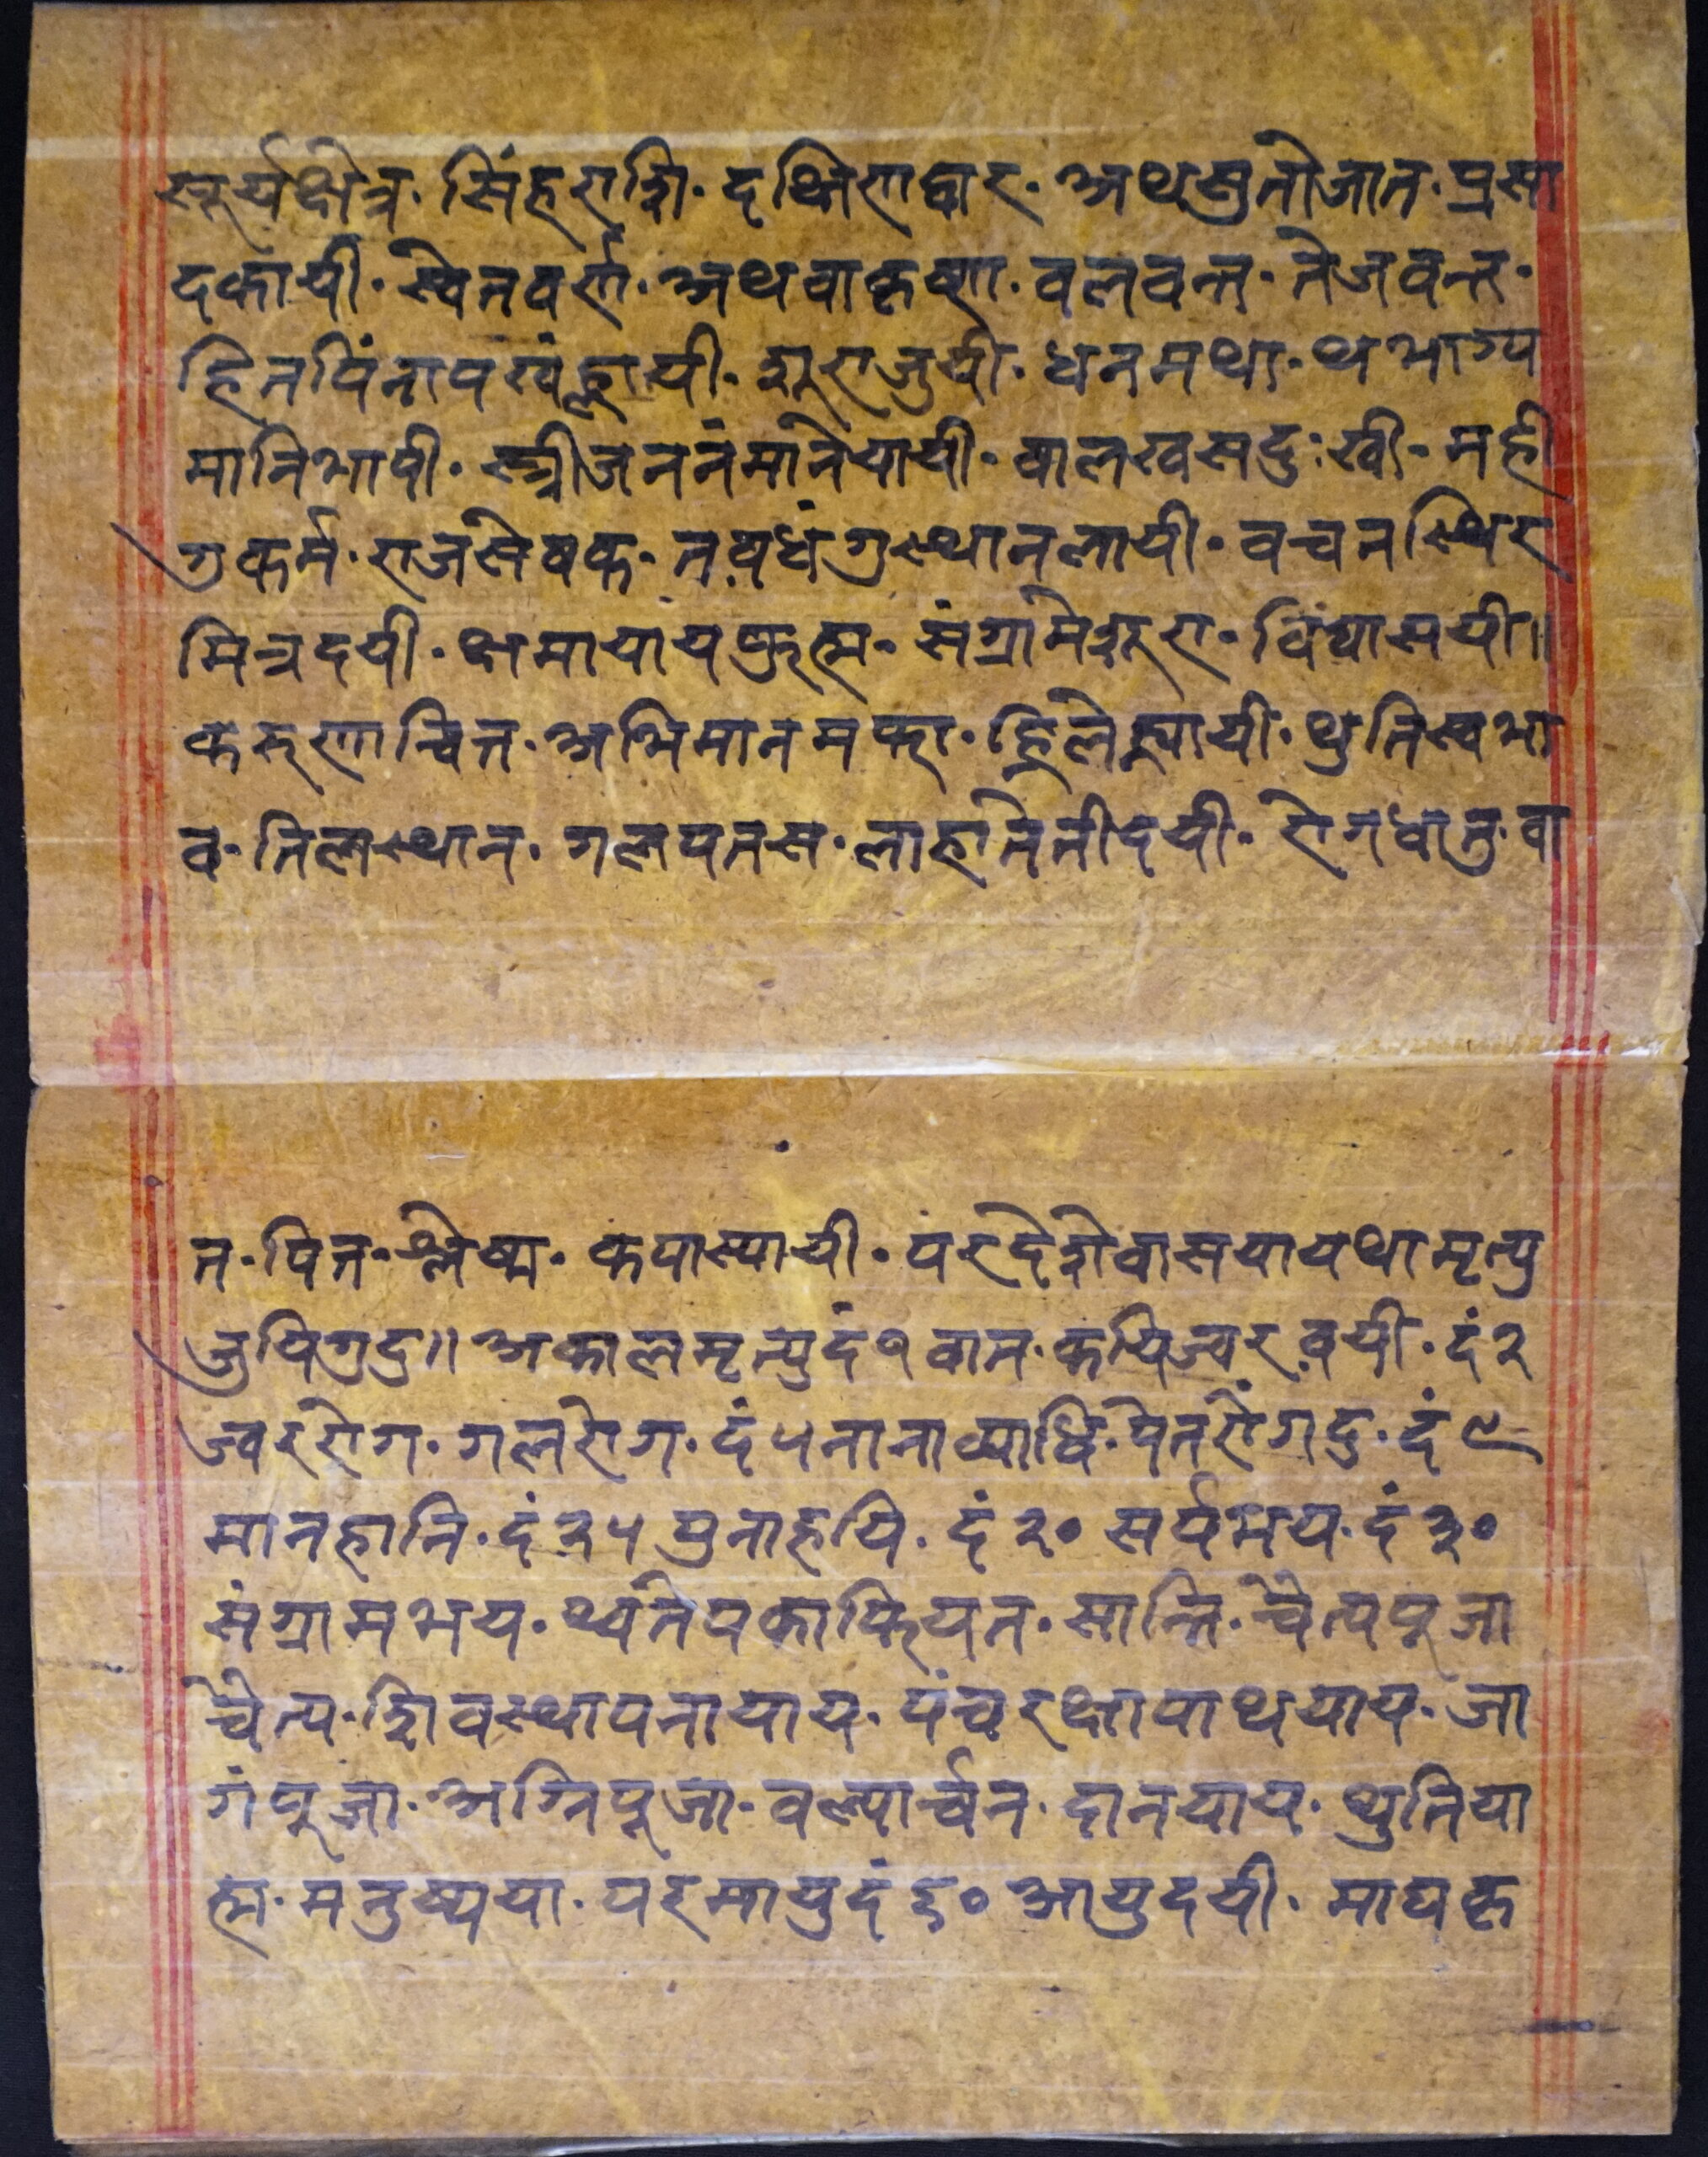 सूर्यक्षेत्र. सिंहराशि. दक्षिणद्वार. अथशुतोजात. प्रसा
दकायी. स्वेतवर्ण. अथवाकृष्ण. वलवन्त. तेजवन्त.
हितपिंतापखंह्लायी. शूराजुयी. धनमथा. थभाग्य
मानिभापी. स्त्रीजननंमानेयायी. वालखसदुःखी. मही
गुकर्म. राजसेवक. नवधंगुस्थानलायी. वचनस्थिर
मित्रदयी. क्षमायायफुह्म. संग्रामेशूरा. विंद्यासयी॥
करुणाचित्त. अभिमानमका. ह्लिलेह्यायी. थुतिस्वभा
व. तिलस्थान. गलपतस. लाहातेतीदयी. रोगधातु. वा
त. पित. श्लेष्म. कपास्यायी. परदेशेवासयायथामृत्यु
जुयिगुदु॥ अकालमृत्युदं१ वात. कयिज्वर. वयी. दं२
ज्वररोग. गलरोग. दं५ नानाव्याधि. पेतरोगदु. दं९
मानहानि. दं२५ पुनाहयि. दं२० सर्पभय. दं३०
संग्रामभय. थ्वतेपकाफियत. सान्ति. चैत्यपूजा
चैत्य. शिवस्थापनायाय. पंचरक्षापाथयाय. जा
गंपूजा. अग्निपूजा. वल्यार्चन. दानयाय. थुतिया
ह्म. मनुष्यया. परमायुदं६० आयुदयी. माघकृ